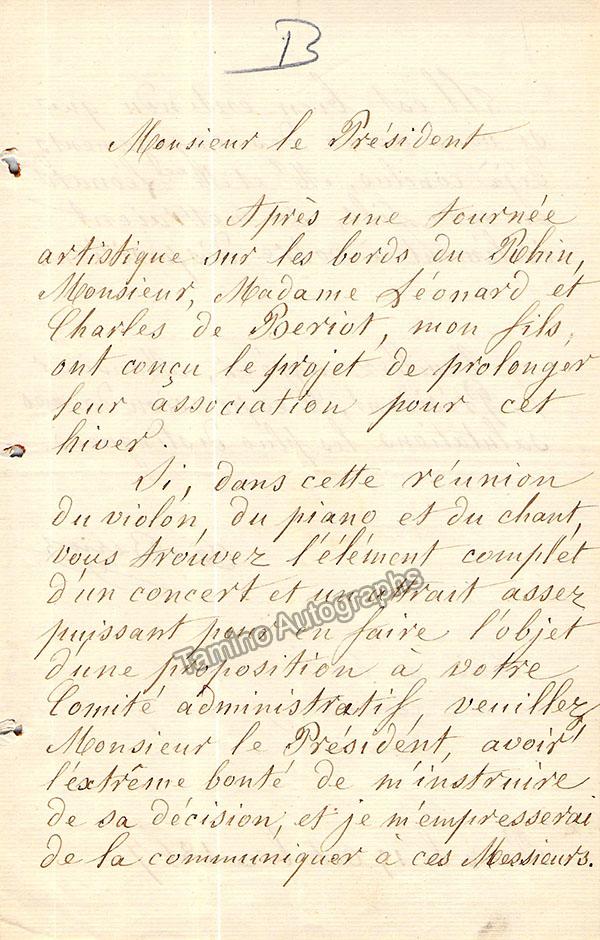 B
Monsieur le Président
Après une tournée
artistique sur les bords du Rhin,
Monsieur, Madame Léonard et
Charles de Beriot, mon fils,
ont conçu le projet de prolonger
leur association pour cet
hiver.
Si, dans cette réunion
du violon, du piano et du chant,
vous trouvez l'élément complet
d'un concert et un attrait assez
puissant pour en faire l'objet
d'une proposition à votre
Comité administratif, veuillez,
Monsieur le Président, avoir
l'extrême bonté de m'instruire
de sa décision, et je m'empresserai
de la communiquer à ces Messieurs.
Tamino Autographs